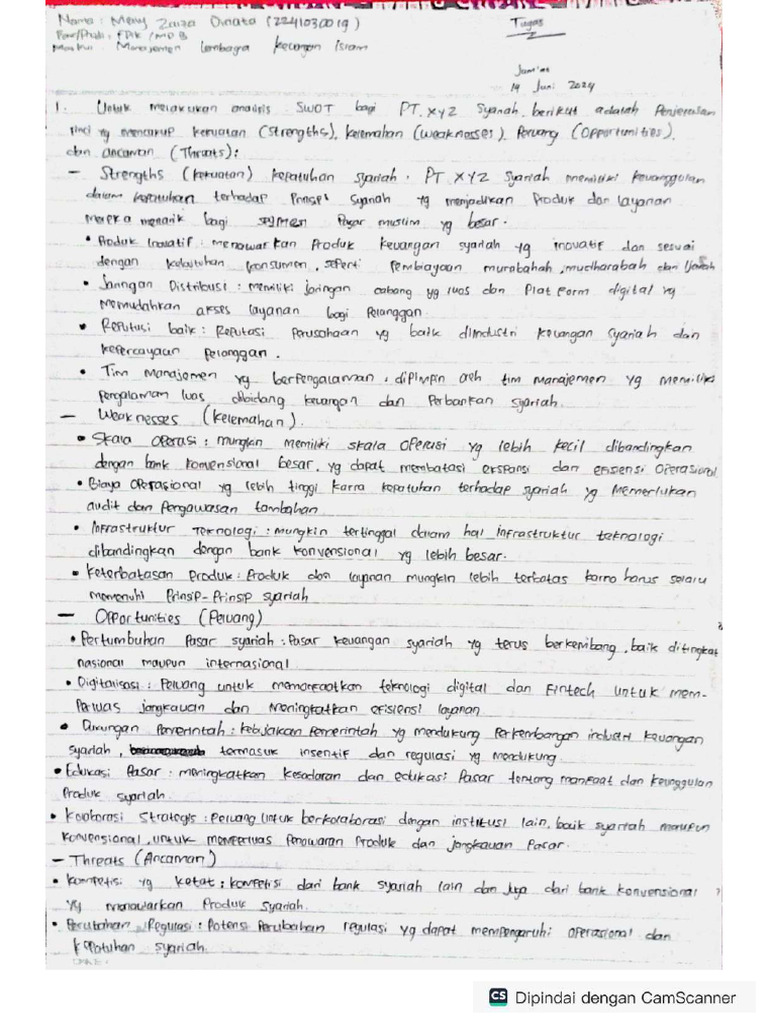 Nama : Meny Zaiza Dinata (2241030019)
Tugas
Fak/Prodi : FDIK / MD B
Matkul : Manajemen Lembaga Keuangan Islam
Jum'at
14 Juni 2024
1. Untuk melakukan analisis SWOT bagi PT. XYZ Syariah, berikut adalah Penjelasan
rinci yg mencakup kekuatan (Strengths), kelemahan (Weaknesses), Peluang (Opportunities),
dan ancaman (Threats) :
– Strengths (Kekuatan) kepatuhan syariah. PT XYZ Syariah memiliki keunggulan
dalam kepatuhan terhadap Prinsip Syariah yg menjadikan Produk dan layanan
mereka menarik bagi segmen Pasar muslim yg besar.
• Produk Inovatif : menawarkan Produk keuangan syariah yg inovatif dan sesuai
dengan kebutuhan konsumen, seperti Pembiayaan murabahah, mudharabah dan Ijarah
• Jaringan Distribusi : memiliki jaringan cabang yg luas dan Platform digital yg
Memudahkan akses layanan bagi Pelanggan.
• Reputusi baik : Reputasi Perusahaan yg baik diindustri keuangan syariah dan
kepercayaan pelanggan.
• Tim Manajemen yg berpengalaman, dipimpin oleh tim manajemen yg memiliki
pengalaman luas dibidang keuangan dan Perbankan syariah.
– Weaknesses (Kelemahan).
• Skala Operasi : mungkin memiliki skala operasi yg lebih kecil dibandingkan
dengan bank konvensional besar, yg dapat membatasi ekspansi dan efisiensi Operasional
• Biaya Operasional yg lebih tinggi karna kepatuhan terhadap syariah yg Memerlukan
audit dan Pengawasan tambahan
• Infrastruktur Teknologi : mungkin tertinggal dalam hal infrastruktur teknologi
dibandingkan dengan bank konvensional yg lebih besar.
• Keterbatasan Produk : Produk dan layanan mungkin lebih terbatas karna harus selalu
memenuhi Prinsip-Prinsip syariah
– Opportunities (Peluang)
• Pertumbuhan Pasar syariah : Pasar keuangan syariah yg terus berkembang, baik ditingkat
nasional maupun internasional
• Digitalisasi : Peluang untuk memanfaatkan teknologi digital dan Fintech untuk mem-
Perluas jangkauan dan Meningkatkan efisiensi layanan
• Dukungan Pemerintah : kebijakan Pemerintah yg mendukung Perkembangan industri keuangan
syariah, termasuk insentif dan regulasi yg mendukung.
• Edukasi Pasar : meningkatkan kesadaran dan edukasi Pasar tentang manfaat dan keunggulan
Produk syariah.
• Kolaborasi Strategis : Peluang untuk berkolaborasi dengan institusi lain, baik syariah maupun
konvensional, untuk memperluas Penawaran Produk dan jangkauan Pasar.
– Threats (Ancaman)
• Kompetisi yg ketat : kompetisi dari bank syariah lain dan juga dari bank konvensional
yg menawarkan Produk syariah.
• Perubahan Regulasi : Potensi Perubahan regulasi yg dapat mempengaruhi operasional dan
kepatuhan syariah.
CS Dipindai dengan CamScanner